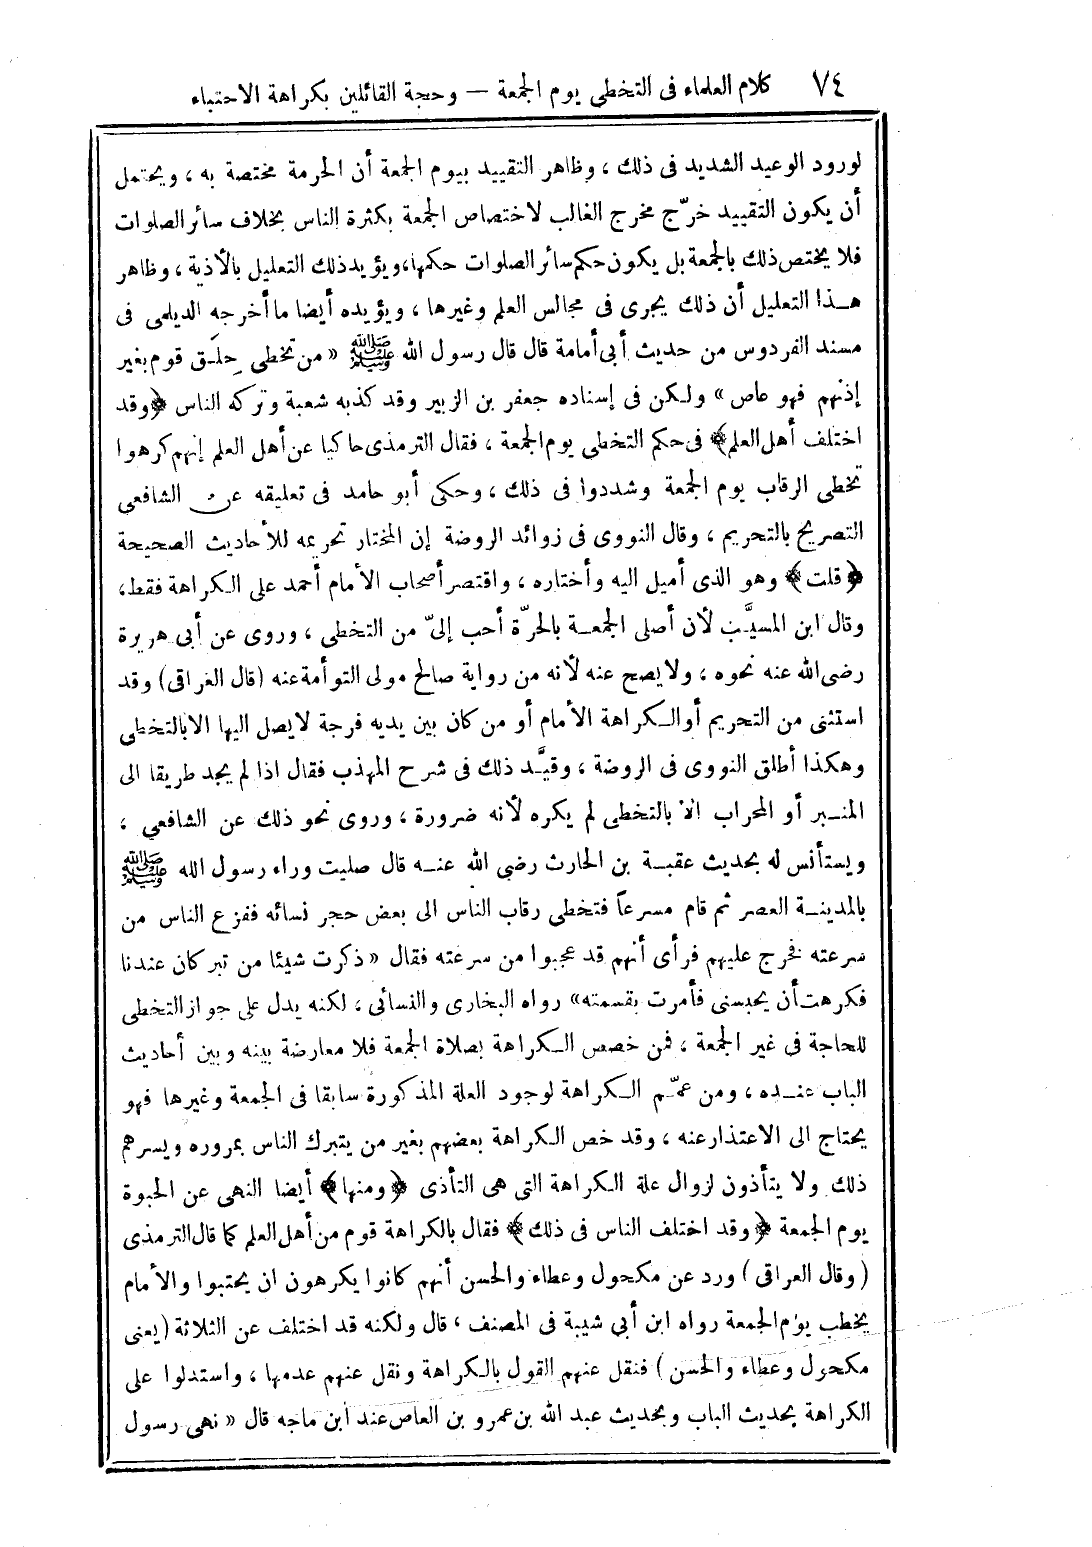 ٧٤ كلام العلماء فى التخطى يوم الجمعة — وحجة القائلين بكراهة الاحتباء
لورود الوعيد الشديد فى ذلك ، وظاهر التقييد بيوم الجمعة أن الحرمة مختصة به ، ويحتمل
أن يكون التقييد خرّج مخرج الغالب لاختصاص الجمعة بكثرة الناس بخلاف سائر الصلوات
فلا يختص ذلك بالجمعة بل يكون حكم سائر الصلوات حكمها، ويؤيد ذلك التعليل بالأذية ، وظاهر
هـذا التعليل أن ذلك يجرى فى مجالس العلم وغيرها ، ويؤيده أيضا ما أخرجه الديلمى فى
مسند الفردوس من حديث أبى أمامة قال قال رسول الله ﷺ « من تخطى حِلَـق قوم بغير
إذنهم فهو عاص » ولـكن فى إسناده جعفر بن الزبير وقد كذبه شعبة وتركه الناس ﴿وقد
اختلف أهل العلم﴾ فى حكم التخطى يوم الجمعة ، فقال الترمذى حاكيا عن أهل العلم إنهم كرهوا
تخطى الرقاب يوم الجمعة وشددوا فى ذلك ، وحكى أبو حامد فى تعليقه عن الشافعى
التصريح بالتحريم ، وقال النووى فى زوائد الروضة إن المختار تحريمه للأحاديث الصحيحة
﴿قلت﴾ وهو الذى أميل اليه وأختاره ، واقتصر أصحاب الأمام أحمد على الـكراهة فقط،
وقال ابن المسيَّب لأن أصلى الجمعـة بالحرّة أحب إلىّ من التخطى ، وروى عن أبى هريرة
رضى الله عنه نحوه ، ولا يصح عنه لأنه من رواية صالح مولى التوأمة عنه (قال العراقى) وقد
استثنى من التحريم أو الـكراهة الأمام أو من كان بين يديه فرجة لا يصل اليها الا بالتخطى
وهكذا أطلق النووى فى الروضة ، وقيَّـد ذلك فى شرح المهذب فقال اذا لم يجد طريقا الى
المنـبر أو المحراب الا بالتخطى لم يكره لأنه ضرورة ، وروى نحو ذلك عن الشافعى ،
ويستأنس له بحديث عقبـة بن الحارث رضى الله عنـه قال صليت وراء رسول الله ﷺ
بالمدينـة العصر ثم قام مسرعاً فتخطى رقاب الناس الى بعض حجر نسائه ففزع الناس من
سرعته فخرج عليهم فرأى أنهم قد عجبوا من سرعته فقال « ذكرت شيئا من تبر كان عندنا
فكرهت أن يحبسنى فأمرت بقسمته» رواه البخارى والنسائى ، لكنه يدل على جواز التخطى
للحاجة فى غير الجمعة ، فمن خصص الـكراهة بصلاة الجمعة فلا معارضة بينه وبين أحاديث
الباب عنـده ، ومن عمّـم الـكراهة لوجود العلة المذكورة سابقا فى الجمعة وغيرها فهو
يحتاج الى الاعتذار عنه ، وقد خص الـكراهة بعضهم بغير من يتبرك الناس بمروره ويسرهم
ذلك ولا يتأذون لزوال علة الـكراهة التى هى التأذى ﴿ومنها﴾ أيضا النهى عن الحبوة
يوم الجمعة ﴿وقد اختلف الناس فى ذلك﴾ فقال بالكراهة قوم من أهل العلم كما قال الترمذى
(وقال العراقى) ورد عن مكحول وعطاء والحسن أنهم كانوا يكرهون ان يحتبوا والأمام
يخطب يوم الجمعة رواه ابن أبي شيبة فى المصنف ، قال ولكنه قد اختلف عن الثلاثة (يعنى
مكحول وعطاء والحسن) فنقل عنهم القول بالـكراهة ونقل عنهم عدمها ، واستدلوا على
الكراهة بحديث الباب وبحديث عبد الله بن عمرو بن العاص عند ابن ماجه قال « نهى رسول